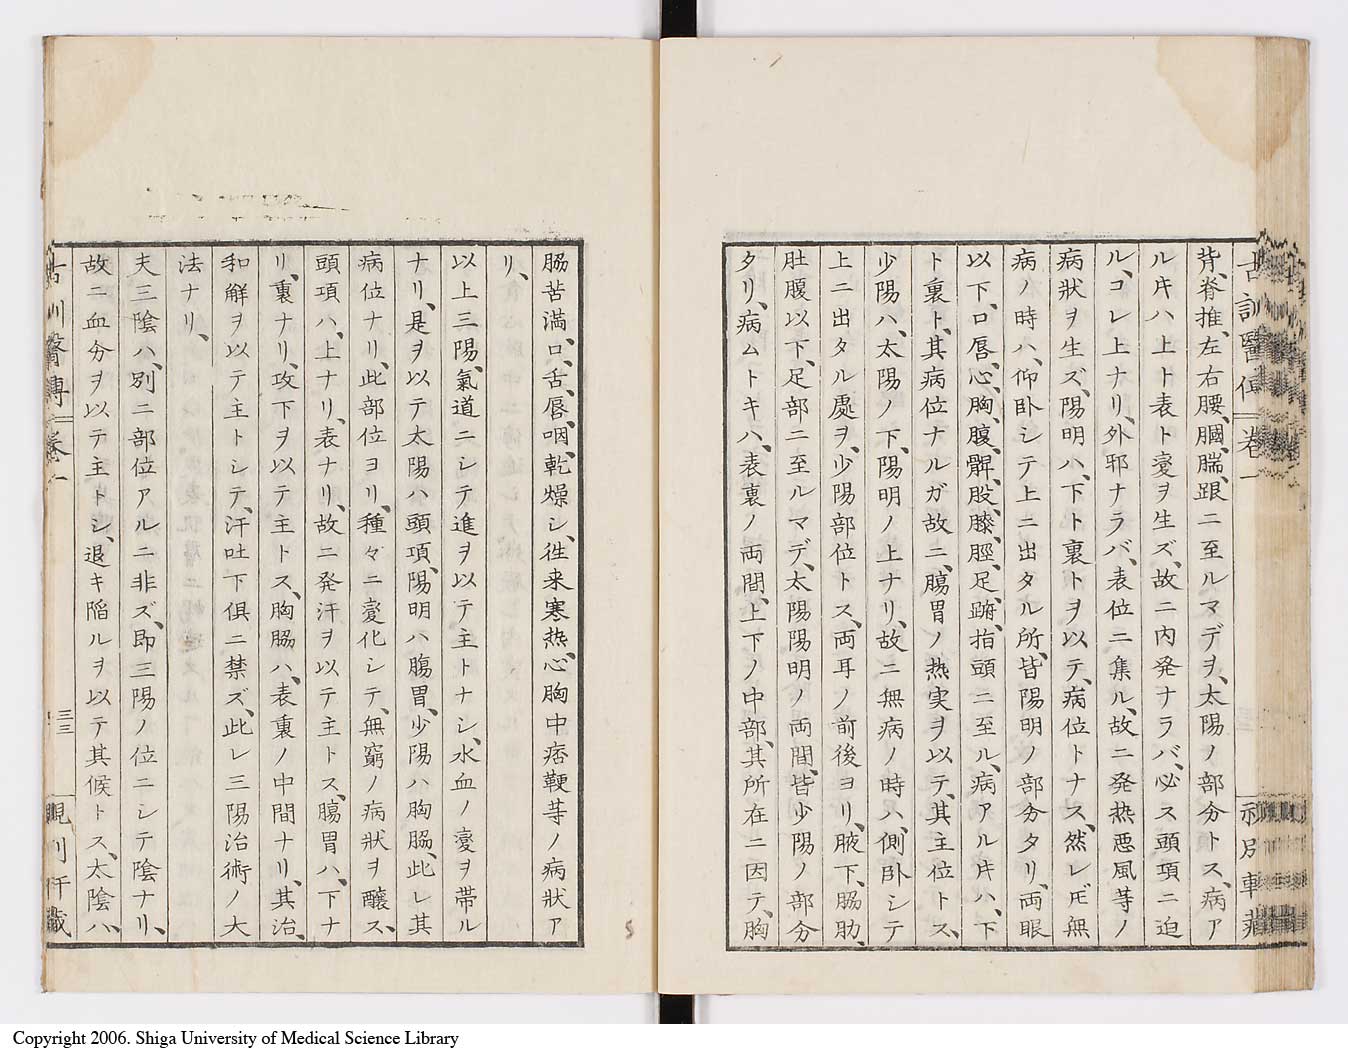 背、脊椎、左右腰、膕、腨、跟ニ至ルマデヲ、太陽ノ部分トス、病ア
ル片ハ上ト表ト変ヲ生ズ、故ニ内発ナラバ、必ス頭項ニ迫
ル、コレ上ナリ、外邪ナラバ、表位ニ集ル、故ニ発热悪風等ノ
病狀ヲ生ズ、陽明ハ、下ト裏トヲ以テ、病位トナス、然レ𪜈無
病ノ時ハ、仰卧シテ上ニ出タル所、皆陽明ノ部分タリ、両眼
以下、口唇、心、胸、腹、髀、股、膝、脛、足、跗、指頭ニ至ル、病アル片ハ、下
ト裏ト、其病位ナルガ故ニ、膓胃ノ热実ヲ以テ、其主位トス、
少陽ハ、太陽ノ下、陽明ノ上ナリ、故ニ無病ノ時ハ、側卧シテ
上ニ出タル處ヲ、少陽部位トス、両耳ノ前後ヨリ、腋下、脇肋、
肚腹以下、足部ニ至ルマデ、太陽陽明ノ両間、皆少陽ノ部分
タリ、病ムトキハ、表裏ノ両間、上下ノ中部、其所在ニ因テ、胸
古訓醫傳 卷一
脇苦滿、口、舌、唇、咽、乾燥シ、徃来寒热、心胸中痞鞕等ノ病狀ア
リ、
以上三陽、氣道ニシテ進ヲ以テ主トナシ、水血ノ変ヲ帯ル
ナリ、是ヲ以テ太陽ハ頭項、陽明ハ腹胃、少陽ハ胸脇、此レ其
病位ナリ、此部位ヨリ、種々ニ変化シテ、無窮ノ病狀ヲ釀ス、
頭項ハ、上ナリ、表ナリ、故ニ発汗ヲ以テ主トス、膓胃ハ、下ナ
リ、裏ナリ、攻下ヲ以テ主トス、胸脇ハ、表裏ノ中間ナリ、其治、
和解ヲ以テ主トシテ、汗吐下俱ニ禁ズ、此レ三陽治術ノ大
法ナリ、
夫三陰ハ、別ニ部位アルニ非ズ、即三陽ノ位ニシテ陰ナリ、
故ニ血分ヲ以テ主トシ、退キ陷ルヲ以テ其候トス、太陰ハ、
古訓醫傳 卷一
三三
Copyright 2006. Shiga University of Medical Science Library